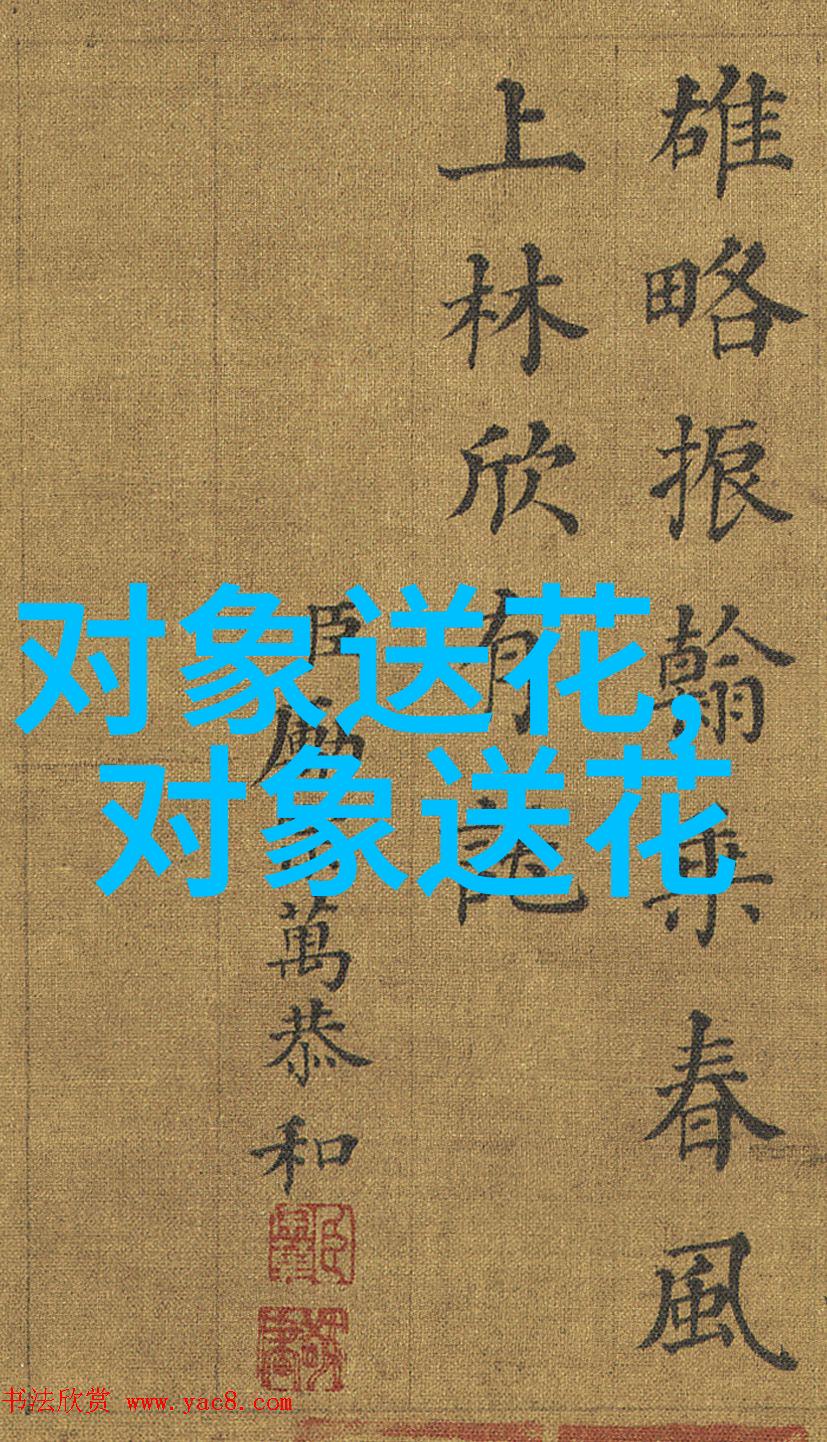 雄略振翰乘春風
上林欣有
臣勵萬恭和
对象送花,
对象送花
书法欣赏 www.yac8.com